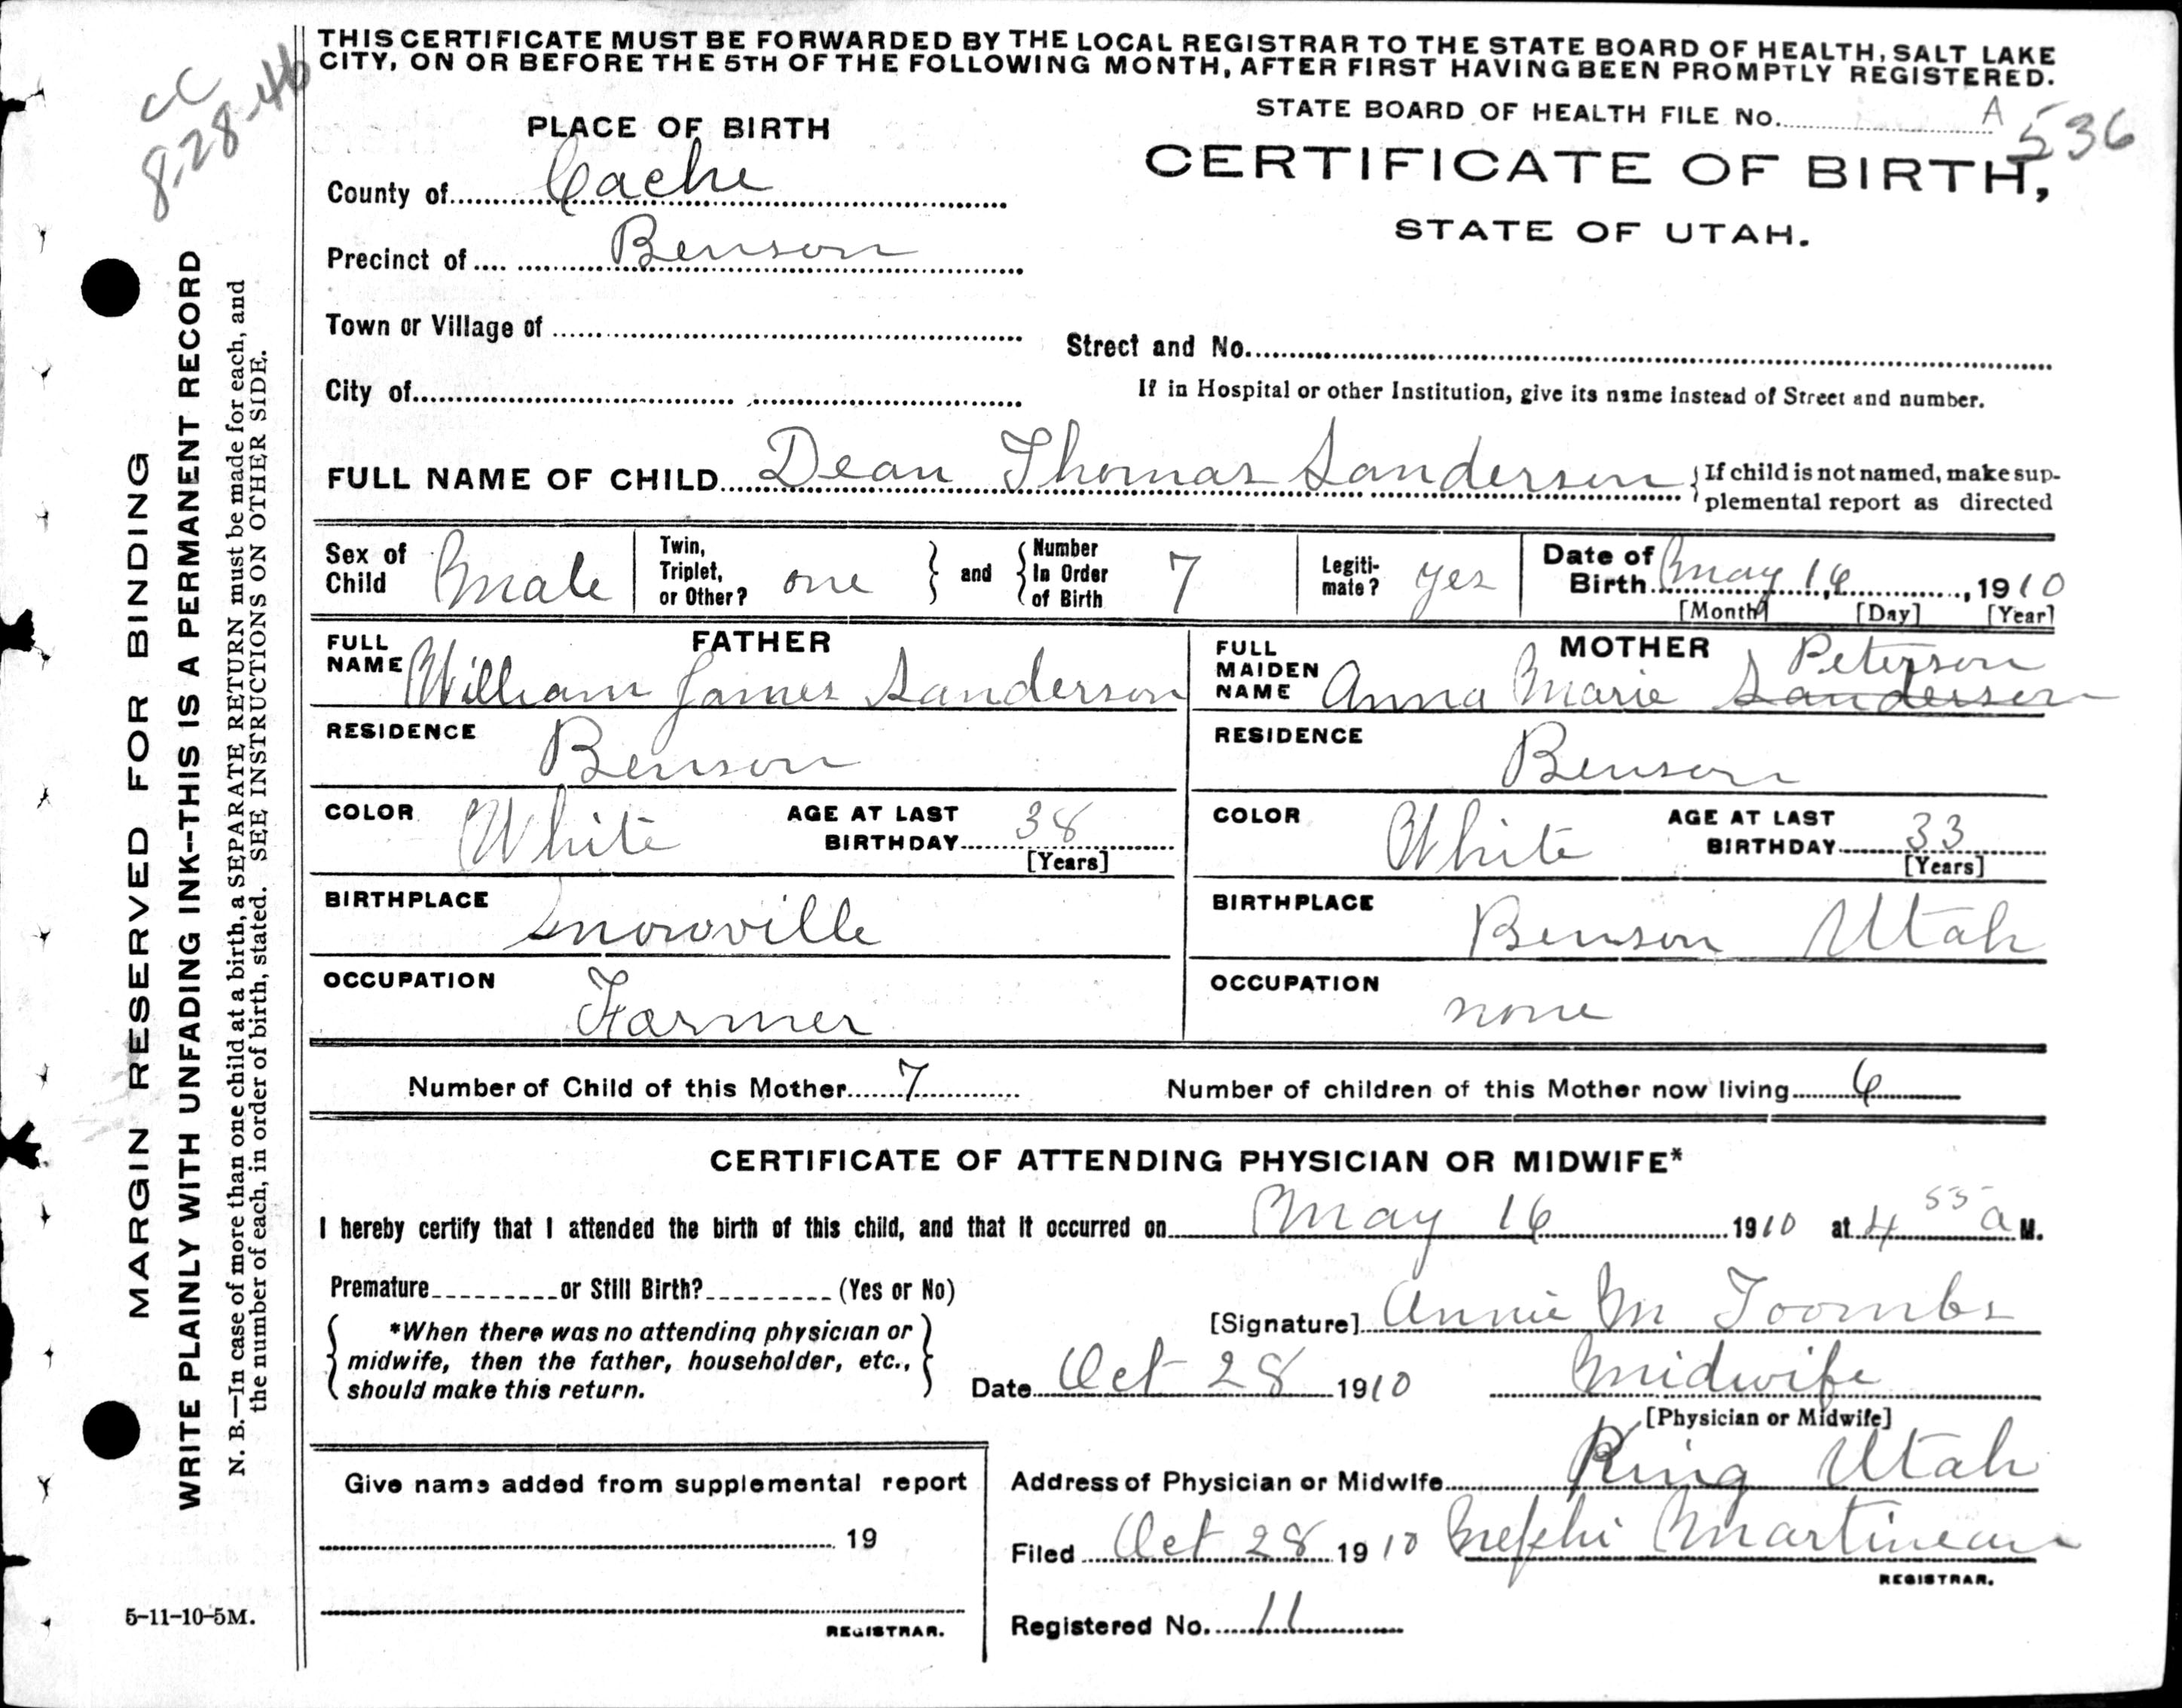 THIS CERTIFICATE MUST BE FORWARDED BY THE LOCAL REGISTRAR TO THE STATE BOARD OF HEALTH, SALT LAKE
CITY, ON OR BEFORE THE 5TH OF THE FOLLOWING MONTH, AFTER FIRST HAVING BEEN PROMPTLY REGISTERED.
CC
8-28-46
STATE BOARD OF HEALTH FILE No. A 536
PLACE OF BIRTH
CERTIFICATE OF BIRTH,
STATE OF UTAH.
County of Cache
Precinct of Benson
Town or Village of
Street and No.
City of
If in Hospital or other Institution, give its name instead of Street and number.
FULL NAME OF CHILD Dean Thomas Sanderson { If child is not named, make sup-
plemental report as directed
Sex of Child Male
Twin, Triplet, or Other? one } and { Number In Order of Birth 7
Legiti-mate? yes
Date of Birth May 16, 1910
[Month] [Day] [Year]
FATHER
FULL NAME William James Sanderson
MOTHER
FULL MAIDEN NAME Anna Marie Sanderson Peterson
RESIDENCE Benson
RESIDENCE Benson
COLOR White AGE AT LAST BIRTHDAY 38 [Years]
COLOR White AGE AT LAST BIRTHDAY 33 [Years]
BIRTHPLACE Snowville
BIRTHPLACE Benson Utah
OCCUPATION Farmer
OCCUPATION none
Number of Child of this Mother 7 Number of children of this Mother now living 6
CERTIFICATE OF ATTENDING PHYSICIAN OR MIDWIFE*
I hereby certify that I attended the birth of this child, and that it occurred on May 16 1910 at 4 55 a M.
Premature or Still Birth? (Yes or No)
[Signature] Annie M Toombs
{ *When there was no attending physician or
midwife, then the father, householder, etc.,
should make this return. }
Date Oct 28 1910 Midwife
[Physician or Midwife]
Address of Physician or Midwife King Utah
Give name added from supplemental report
19
REGISTRAR.
Filed Oct 28 1910 Nephi Martineau
REGISTRAR.
Registered No. 11
5-11-10-5M.
MARGIN RESERVED FOR BINDING
WRITE PLAINLY WITH UNFADING INK--THIS IS A PERMANENT RECORD
N. B.—In case of more than one child at a birth, a SEPARATE RETURN must be made for each, and
the number of each, in order of birth, stated. SEE INSTRUCTIONS ON OTHER SIDE.